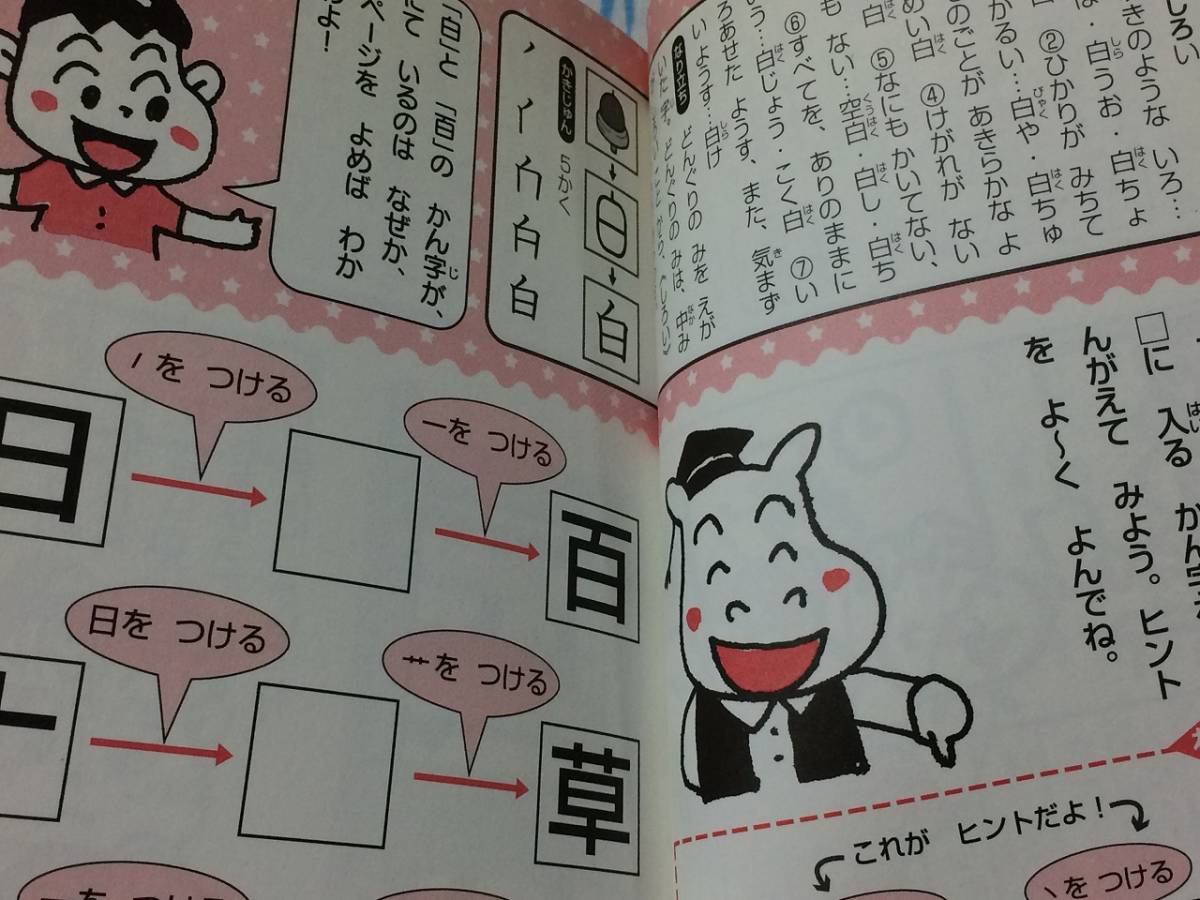 しろい
きのような いろ…
ば・白うお・白ちょ
②ひかりが みちて
かるい…白や・白ちゅ
のごとが あきらかな よ
めい白 ④けがれが ない
白 ⑤なにも かいてない、
も ない…空白・白し・白ち
⑥すべてを、ありのままに
う…白じょう・こく白 ⑦い
ろあせた ようす、また、気まず
いようす…白け
なり立ち どんぐりの みを えが
いた 字。どんぐりの みは、中み
かきじゅん 5かく
白
「白」と 「百」の かん字が、
にて いるのは なぜか、
ページを よめば わか
るよ!
□に 入る かん字を
んがえて みよう。ヒント
を よ〜く よんでね。
日
ノを つける
一を つける
百
日を つける
艹を つける
草
これが ヒントだよ!
丶を つける
を つける